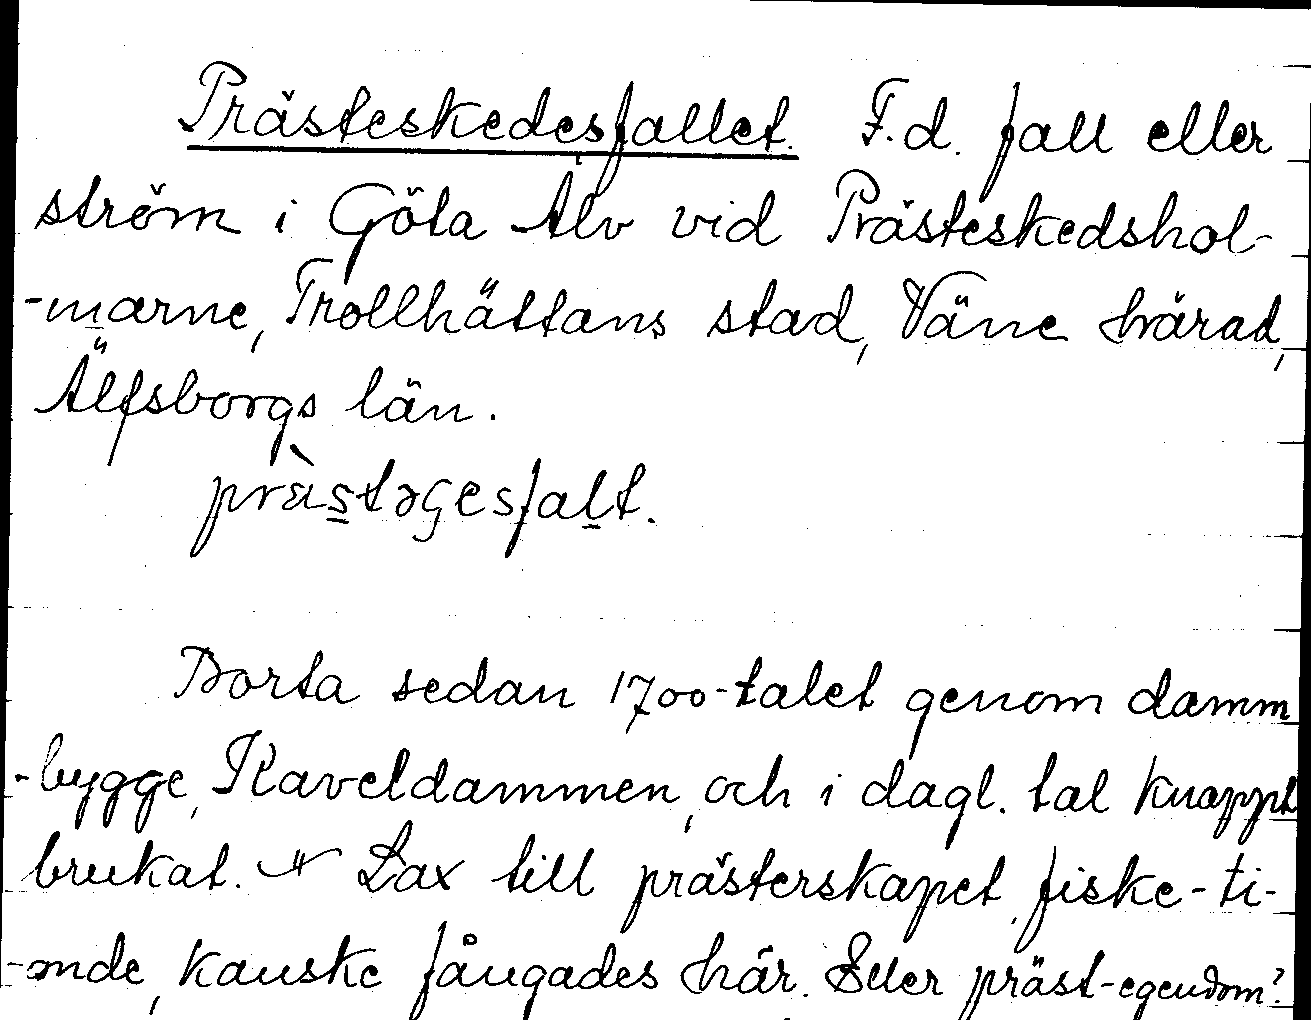 Prästeskedesfallet. F.d. fall eller
ström i Göta Älv vid Prästeskedshol-
-marne, Trollhättans stad, Väne härad,
Älfsborgs län.
prὰstəɕesfalt.
Borta sedan 1700-talet genom damm
-bygge, Kaveldammen, och i dagl. tal knappt
brukat. Lax till prästerskapet, fiske-ti-
-onde, kanske fångades här. Eller präst-egendom?